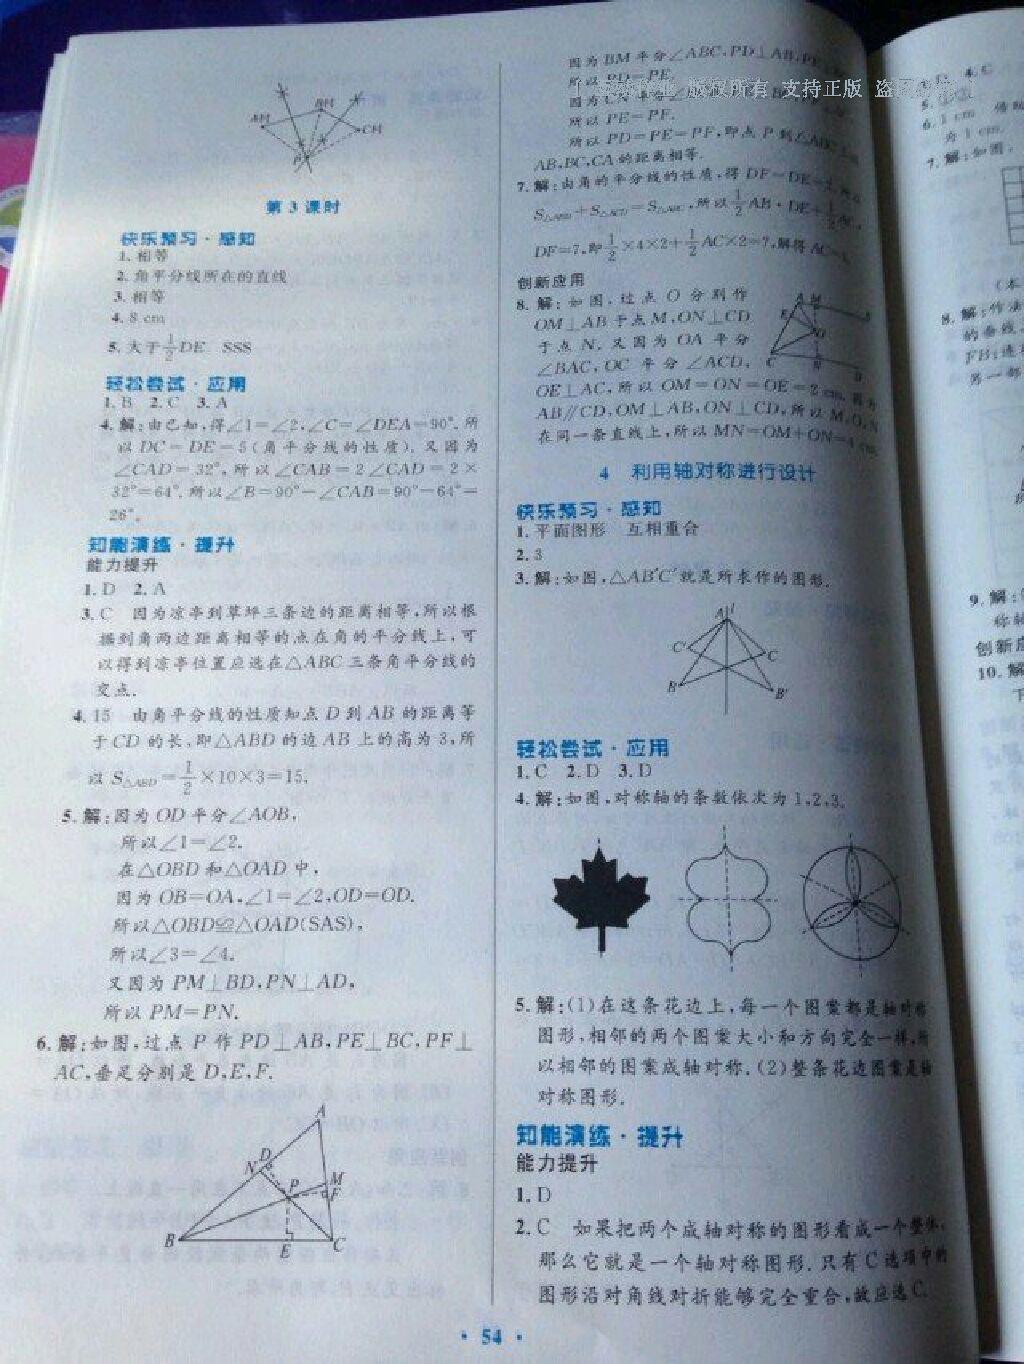 AH
BH
CH
P
第3课时
快乐预习·感知
1.相等
2.角平分线所在的直线
3.相等
4.8 cm
5.大于1/2DE SSS
轻松尝试·应用
1.B 2.C 3.A
4.解:由已知,得∠1=∠2,∠C=∠DEA=90°.所
以DC=DE=5(角平分线的性质).又因为
∠CAD=32°,所以∠CAB=2∠CAD=2×
32°=64°.所以∠B=90°-∠CAB=90°-64°=
26°.
知能演练·提升
能力提升
1.D 2.A
3.C 因为凉亭到草坪三条边的距离相等,所以根
据到角两边距离相等的点在角的平分线上,可
以得到凉亭位置应选在△ABC三条角平分线的
交点.
4.15 由角平分线的性质知点D到AB的距离等
于CD的长,即△ABD的边AB上的高为3,所
以S△ABD=1/2×10×3=15.
5.解:因为OD平分∠AOB,
所以∠1=∠2.
在△OBD和△OAD中,
因为OB=OA,∠1=∠2,OD=OD.
所以△OBD≌△OAD(SAS),
所以∠3=∠4.
又因为PM⊥BD,PN⊥AD,
所以PM=PN.
6.解:如图,过点P作PD⊥AB,PE⊥BC,PF⊥
AC,垂足分别是D,E,F.
A
D
N
M
P
F
B
E
C
因为BM平分∠ABC,PD⊥AB,PE
所以PD=PE.
版权所有 支持正版
因为CN平分
所以PE=PF.
所以PD=PE=PF,即点P到△ABC
AB,BC,CA的距离相等.
7.解:由角的平分线的性质,得DF=DE=2.
S△ABD+S△ACD=S△ABC,所以1/2AB·DE+1/2AC·
DF=7,即1/2×4×2+1/2AC×2=7,解得AC=3.
创新应用
8.解:如图,过点O分别作
OM⊥AB于点M,ON⊥CD
于点N.又因为OA平分
∠BAC,OC平分∠ACD,
OE⊥AC,所以OM=ON=OE=2 cm.因为
AB∥CD,OM⊥AB,ON⊥CD,所以M,O,N
在同一条直线上,所以MN=OM+ON=4 cm.
4 利用轴对称进行设计
快乐预习·感知
1.平面图形 互相重合
2.3
3.解:如图,△AB′C′就是所求作的图形.
A
l
C′
C
B
B′
轻松尝试·应用
1.C 2.D 3.D
4.解:如图,对称轴的条数依次为1,2,3.
5.解:(1)在这条花边上,每一个图案都是轴对称
图形,相邻的两个图案大小和方向完全一样,所
以相邻的图案成轴对称.(2)整条花边图案是轴
对称图形.
知能演练·提升
能力提升
1.D
2.C 如果把两个成轴对称的图形看成一个整体,
那么它就是一个轴对称图形.只有C选项中的
图形沿对角线对折能够完全重合,故应选C.
· 54 ·
4.C
5.①③
6.1 cm
为1 cm.
7.解:如图,
(本
8.解:作法
的垂线
FB;连
另一部
9.解:
称轴
创新应
10.解
下